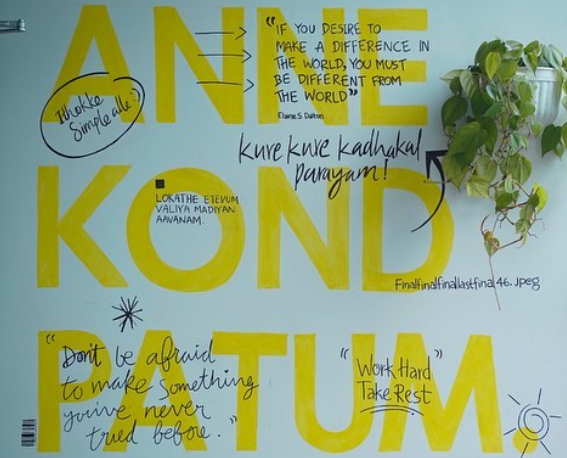 ANNE
"IF YOU DESIRE TO
MAKE A DIFFERENCE IN
THE WORLD, YOU MUST
BE DIFFERENT FROM
THE WORLD"
Elaine S. Dalton
Ithokke
Simple alle :)
Kure Kure Kadhakal
Parayam!
KOND
LOKATHE ETEVUM
VALIYA MADIYAN
AAVANAM.
Finalfinalfinallastfinal 46.jpeg
PATUM
"Don't be afraid
to make something
you've never
tried before."
"Work Hard"
Take Rest